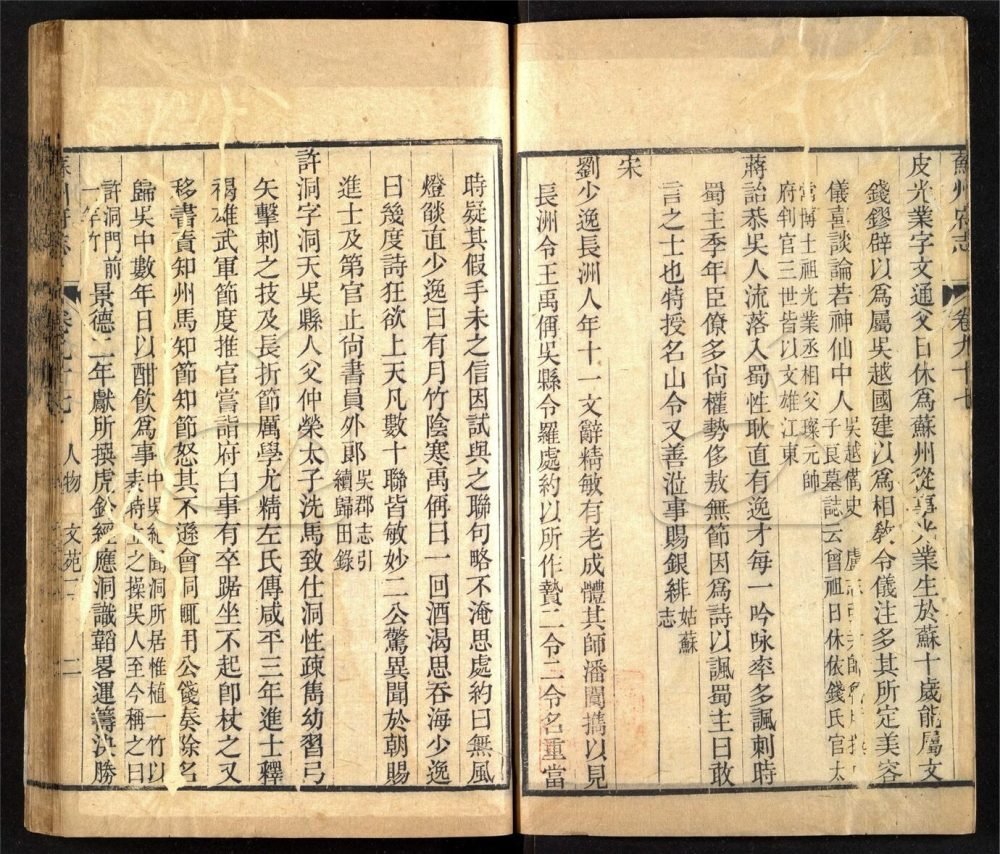 蘇州府志
卷九十七
皮光業字文通父日休爲蘇州從事光業生於蘇十歲能屬文
錢鏐辟以爲屬吳越國建以爲相敎令儀注多其所定美容
儀喜談論若神仙中人吳越備史
子良墓誌云曾祖日休依錢氏官太
常博士祖光業丞相父璨元帥
府判官三世皆以文雄江東
蔣詒恭吳人流落入蜀性耿直有逸才每一吟咏率多諷刺時
蜀主季年臣僚多尙權勢侈敖無節因爲詩以諷蜀主曰敢
言之士也特授名山令又善涖事賜銀緋姑蘇
志
宋
劉少逸長洲人年十一文辭精敏有老成體其師潘閬攜以見
長洲令王禹偁吳縣令羅處約以所作贄二令二令名重當
時疑其假手未之信因試與之聯句略不淹思處約曰無風
燈燄直少逸曰有月竹陰寒禹偁曰一回酒渴思吞海少逸
曰幾度詩狂欲上天凡數十聯皆敏妙二公驚異聞於朝賜
進士及第官止尙書員外郞吳郡志引
續歸田錄
許洞字洞天吳縣人父仲榮太子洗馬致仕洞性疎雋幼習弓
矢擊刺之技及長折節厲學尤精左氏傳咸平三年進士釋
褐雄武軍節度推官嘗詣府白事有卒踞坐不起卽杖之又
移書責知州馬知節知節怒其不遜會洞輒用公錢奏除名
歸吳中數年日以酣飮爲事中吳紀聞洞所居惟植一竹以
表特立之操吳人至今稱之曰
許洞門前
一竿竹景德二年獻所撰虎鈐經應洞識韜畧運籌決勝
蘇州府志
卷九十七
人物
文苑二
二